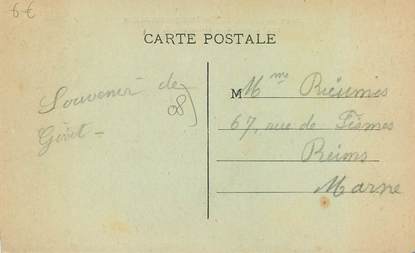 6€
CARTE POSTALE
Souvenir de
08
Givet -
M Mme
67, rue de Fismes
Reims
Marne